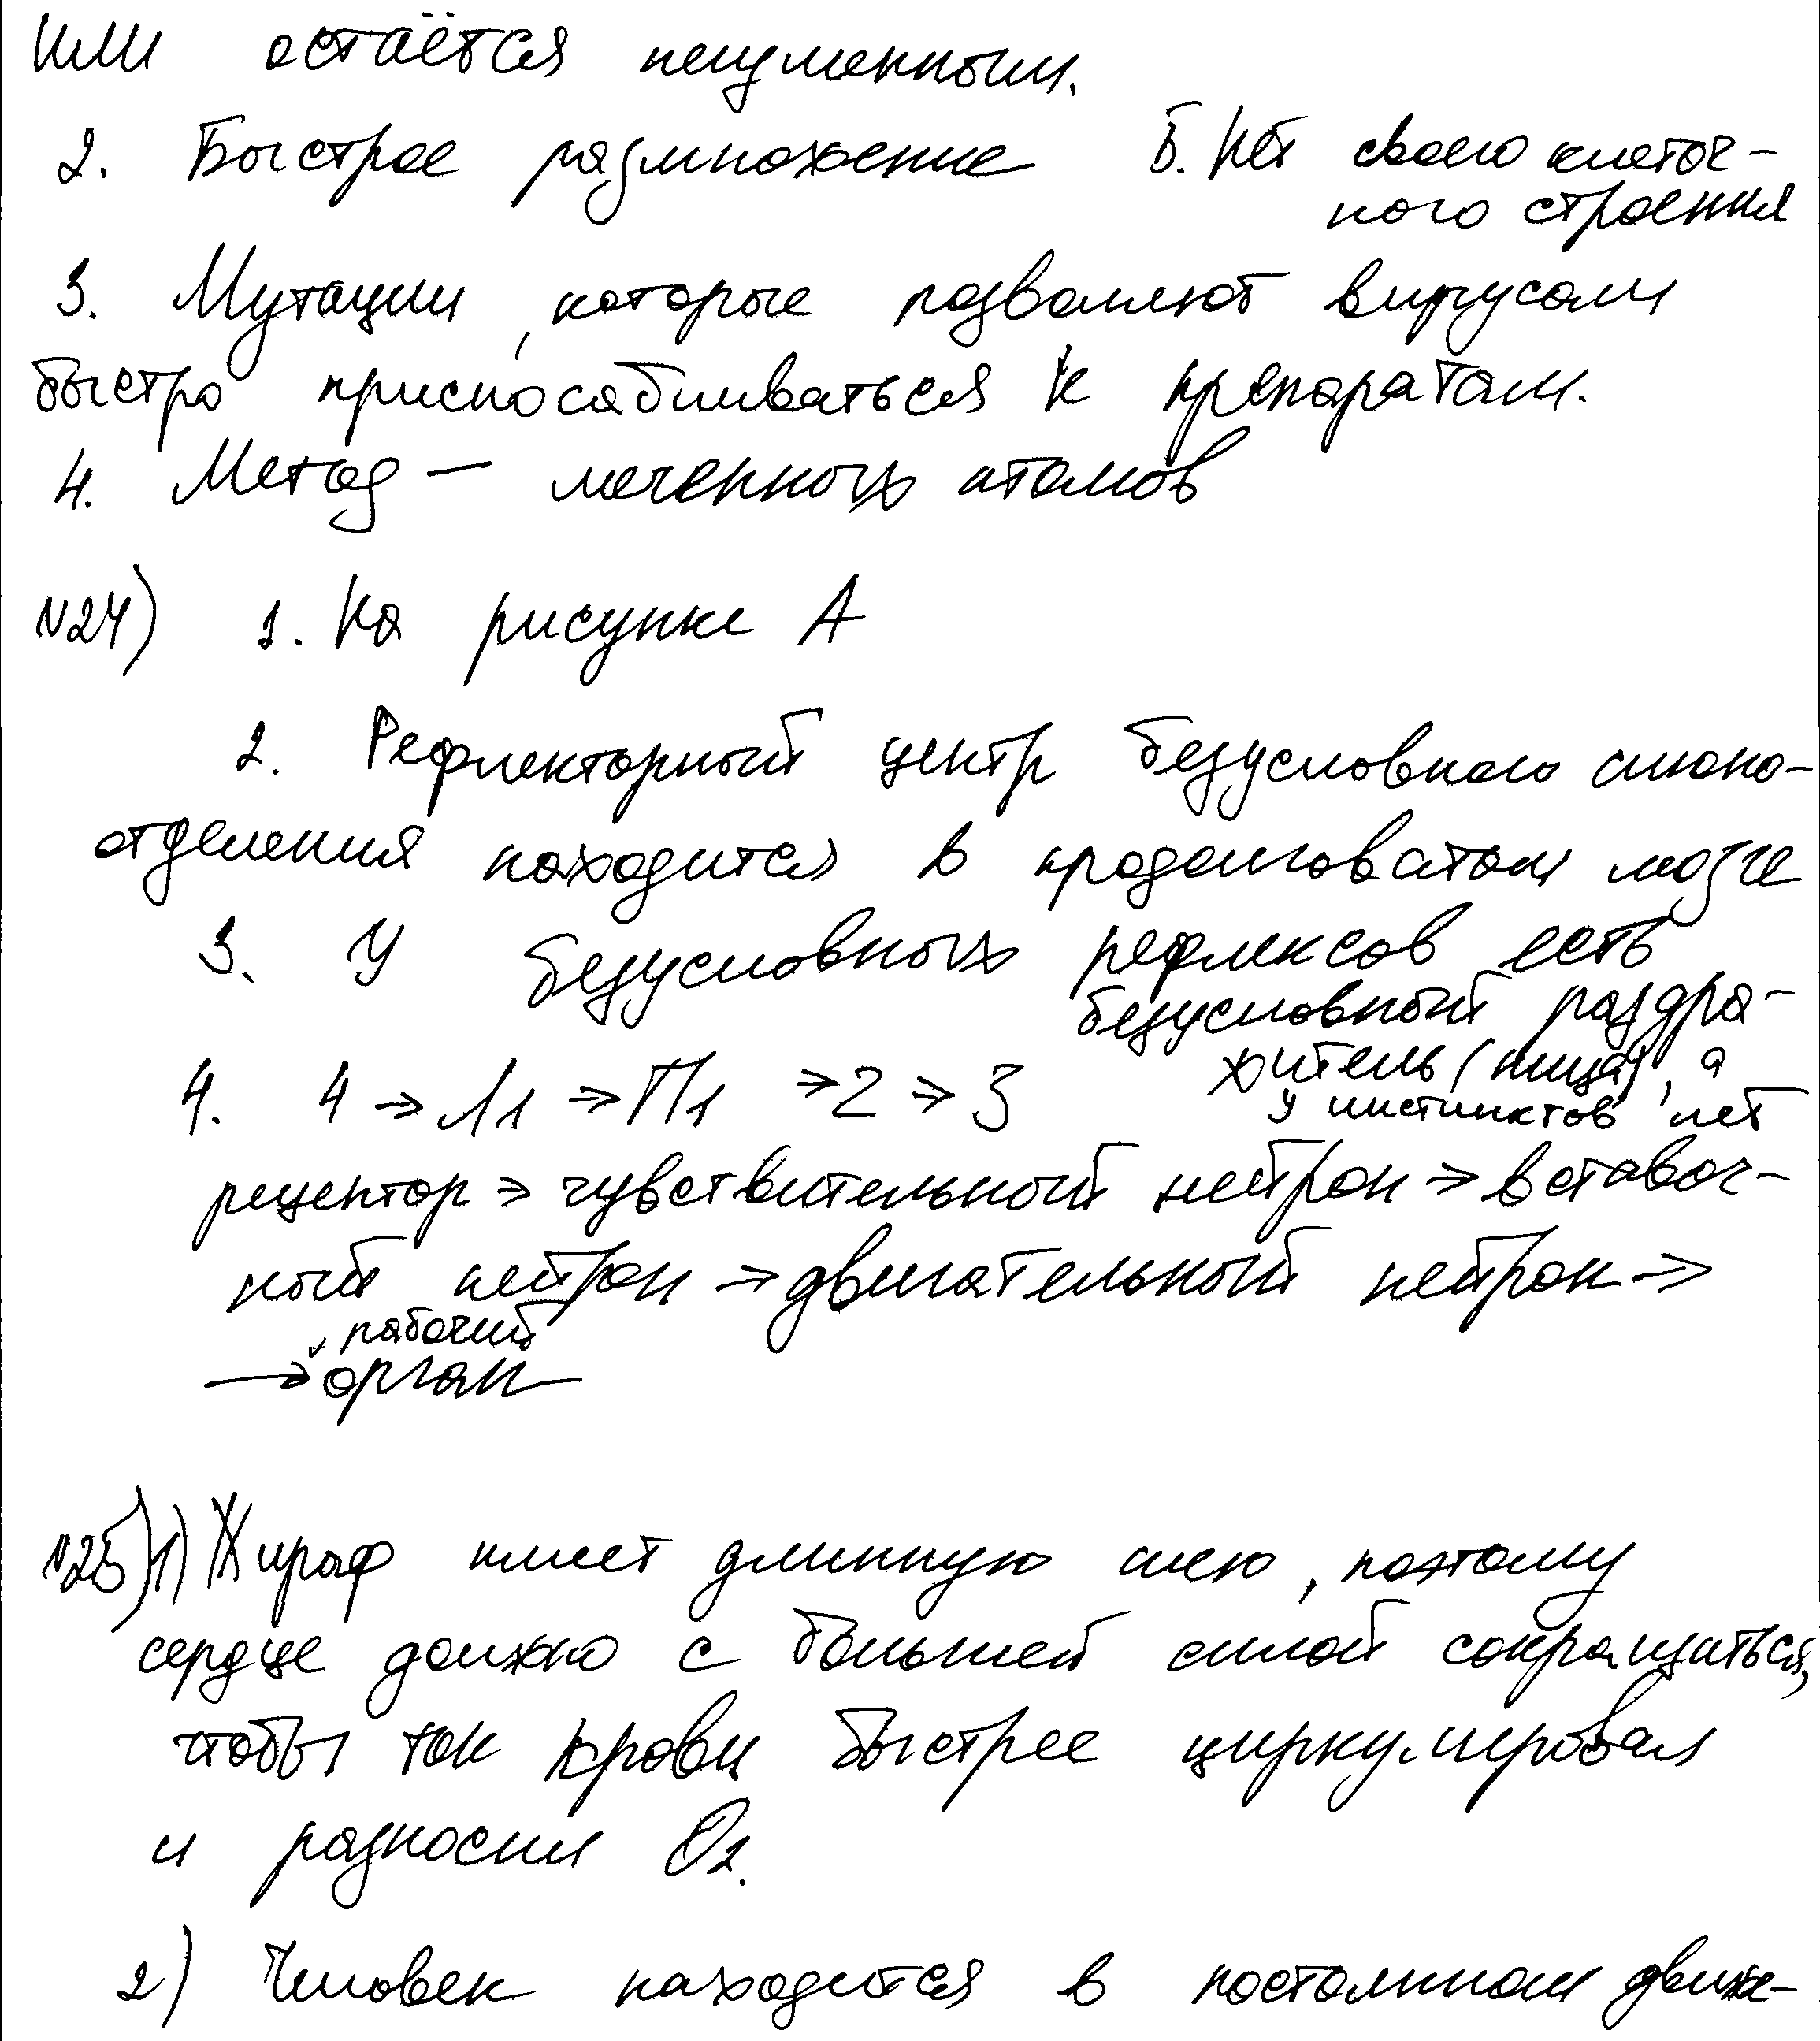 или остаётся неизменным.
2. Быстрое размножение 5. Нет своего клеточ-
ного строения
3. Мутации, которые позволяют вирусам
быстро приспосабливаться к препаратам.
4. Метод – меченных атомов
№24) 1. На рисунке А
2. Рефлекторный центр безусловного слюно-
отделения находится в продолговатом мозге
3. У безусловных рефлексов есть
безусловный раздра-
житель (пища), а
у инстинктов нет
4. 4 → Л1 → П1 → 2 → 3
рецептор → чувствительный нейрон → вставоч-
ный нейрон → двигательный нейрон →
→ рабочий
орган
№25) 1) Жираф имеет длинную шею, поэтому
сердце должно с большей силой сокращаться,
чтобы ток крови быстрее циркулировал
и разносил O2.
2) Человек находится в постоянном движе-